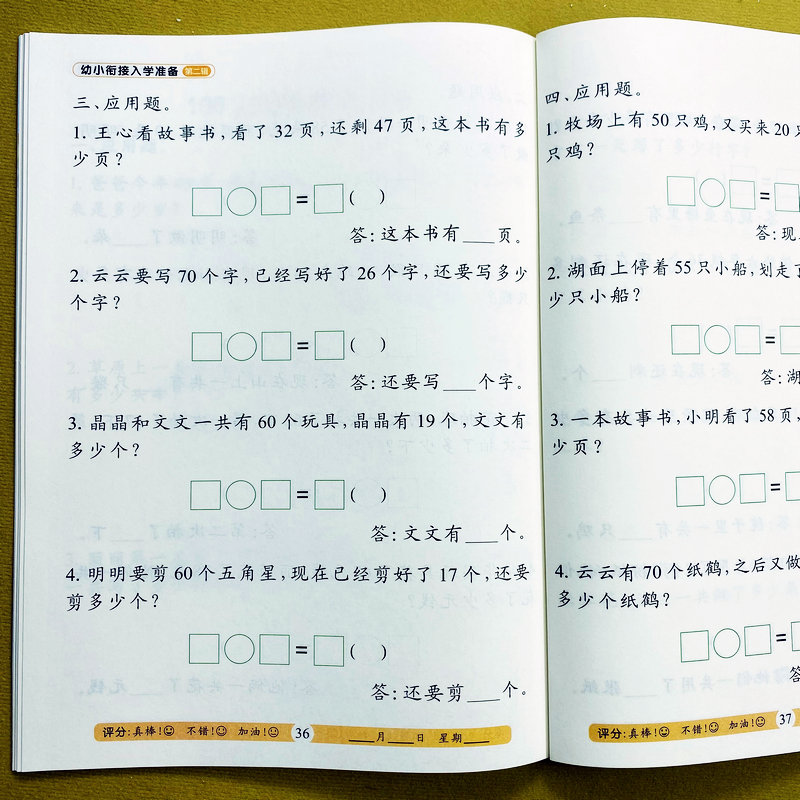 幼小衔接入学准备 第二辑
三、应用题。
1. 王心看故事书,看了32页,还剩47页,这本书有多
少页?
□○□=□( )
答:这本书有___页。
2. 云云要写70个字,已经写好了26个字,还要写多少
个字?
□○□=□( )
答:还要写___个字。
3. 晶晶和文文一共有60个玩具,晶晶有19个,文文有
多少个?
□○□=□( )
答:文文有___个。
4. 明明要剪60个五角星,现在已经剪好了17个,还要
剪多少个?
□○□=□( )
答:还要剪___个。
评分:真棒! 不错! 加油! 36 ___月___日 星期___
四、应用题。
1. 牧场上有50只鸡,又买来20只
只鸡?
□○□=
答:现
2. 湖面上停着55只小船,划走了
少只小船?
□○□=
答:湖
3. 一本故事书,小明看了58页,
少页?
□○□=
4. 云云有70个纸鹤,之后又做
多少个纸鹤?
□○□=
答
评分:真棒! 不错! 加油! 37